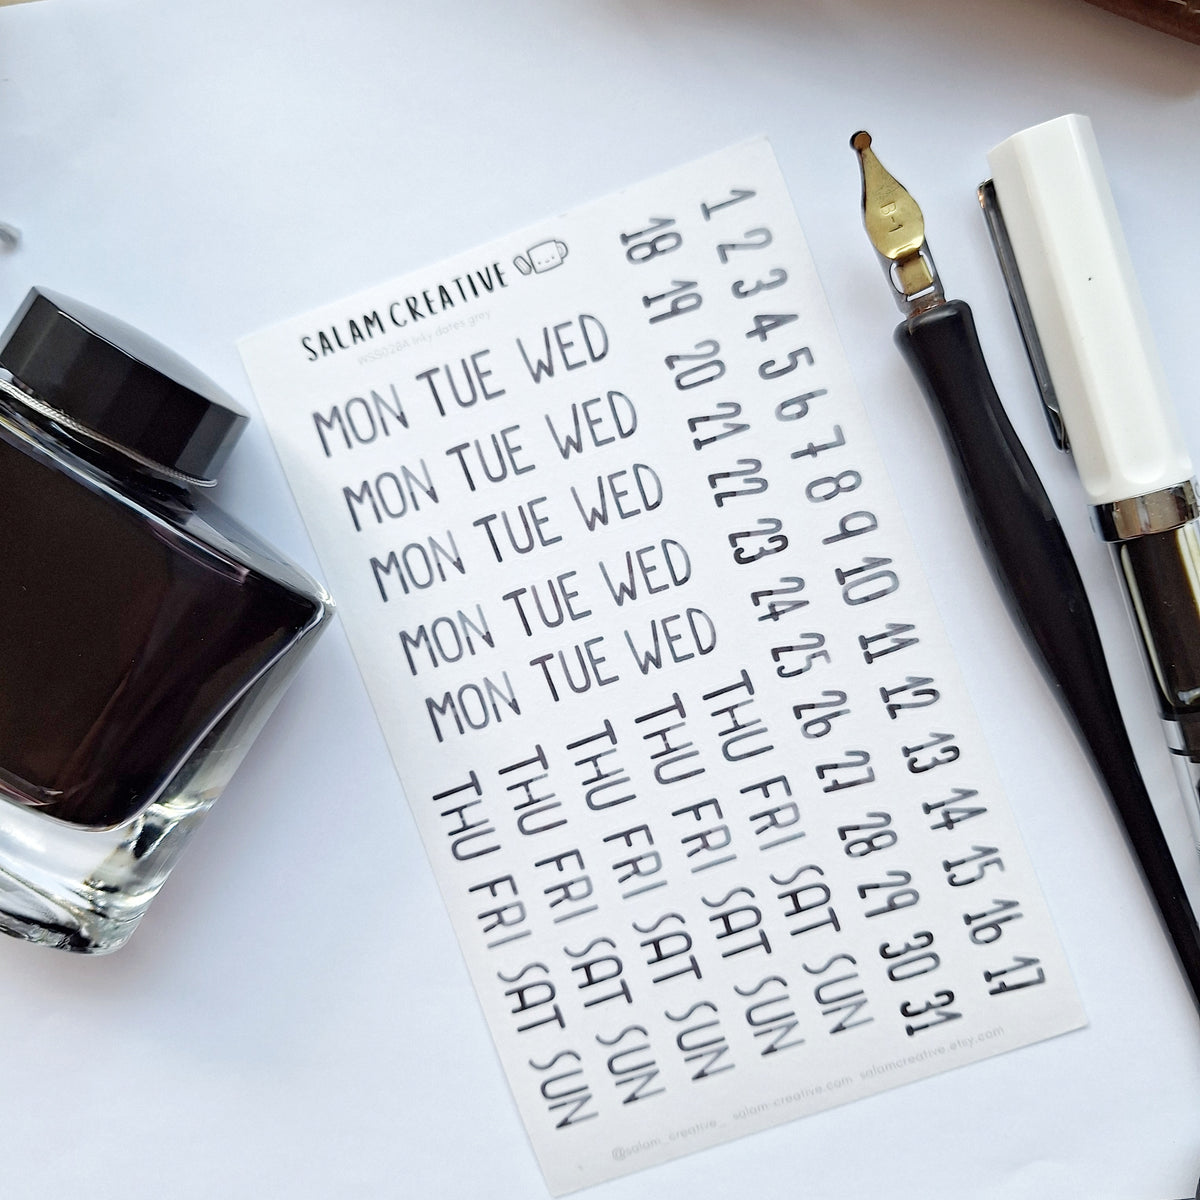 SALAM CREATIVE
WSS0284 Inky dates grey
MON TUE WED
MON TUE WED
MON TUE WED
MON TUE WED
MON TUE WED
THU FRI SAT SUN
THU FRI SAT SUN
THU FRI SAT SUN
THU FRI SAT SUN
THU FRI SAT SUN
1 2 3 4 5 6 7 8 9 10 11 12 13 14 15 16 17
18 19 20 21 22 23 24 25 26 27 28 29 30 31
@salam_creative_ salam-creative.com salamcreative.etsy.com
B-1